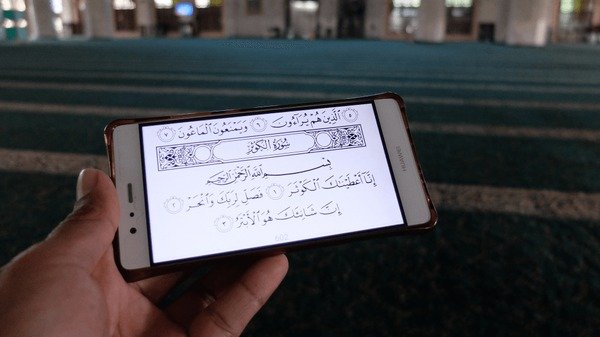 ٥ ٱلَّذِينَ هُمْ يُرَآءُونَ ٦ وَيَمْنَعُونَ ٱلْمَاعُونَ ٧
سُورَةُ الكَوْثَرِ
بِسْمِ ٱللَّهِ ٱلرَّحْمَٰنِ ٱلرَّحِيمِ
إِنَّآ أَعْطَيْنَٰكَ ٱلْكَوْثَرَ ١ فَصَلِّ لِرَبِّكَ وَٱنْحَرْ ٢
إِنَّ شَانِئَكَ هُوَ ٱلْأَبْتَرُ ٣
602
HUAWEI